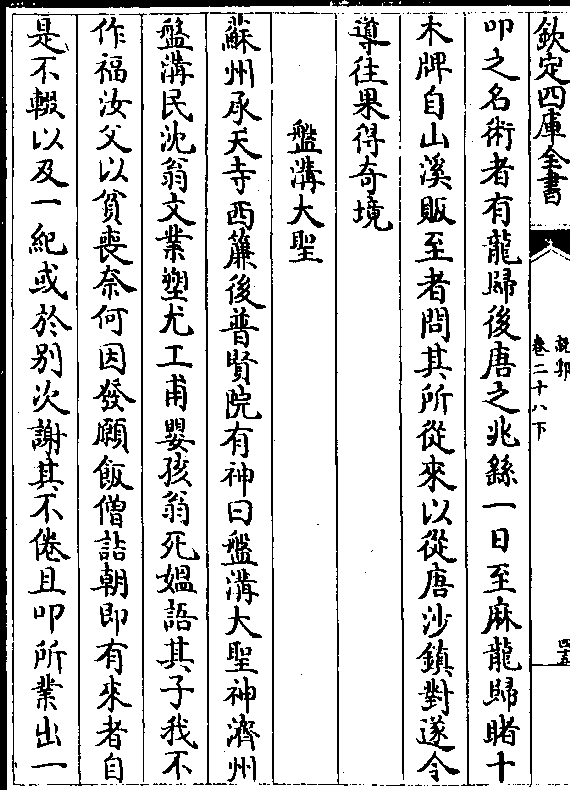 欽定四庫全書
說郛
卷二十八下
四五
叩之名術者有龍歸後唐之兆繇一日至麻龍歸睹十
木牌自山溪販至者問其所從來以從唐沙鎮對遂令
導往果得奇境
盤溝大聖
蘇州承天寺西簾後普賢院有神曰盤溝大聖神濟州
盤溝民沈翁文業塑尤工甫嬰孩翁死媼語其子我不
作福汝父以貧喪奈何因發願飯僧詰朝即有來者自
是不輟以及一紀或於別次謝其不倦且叩所業出一